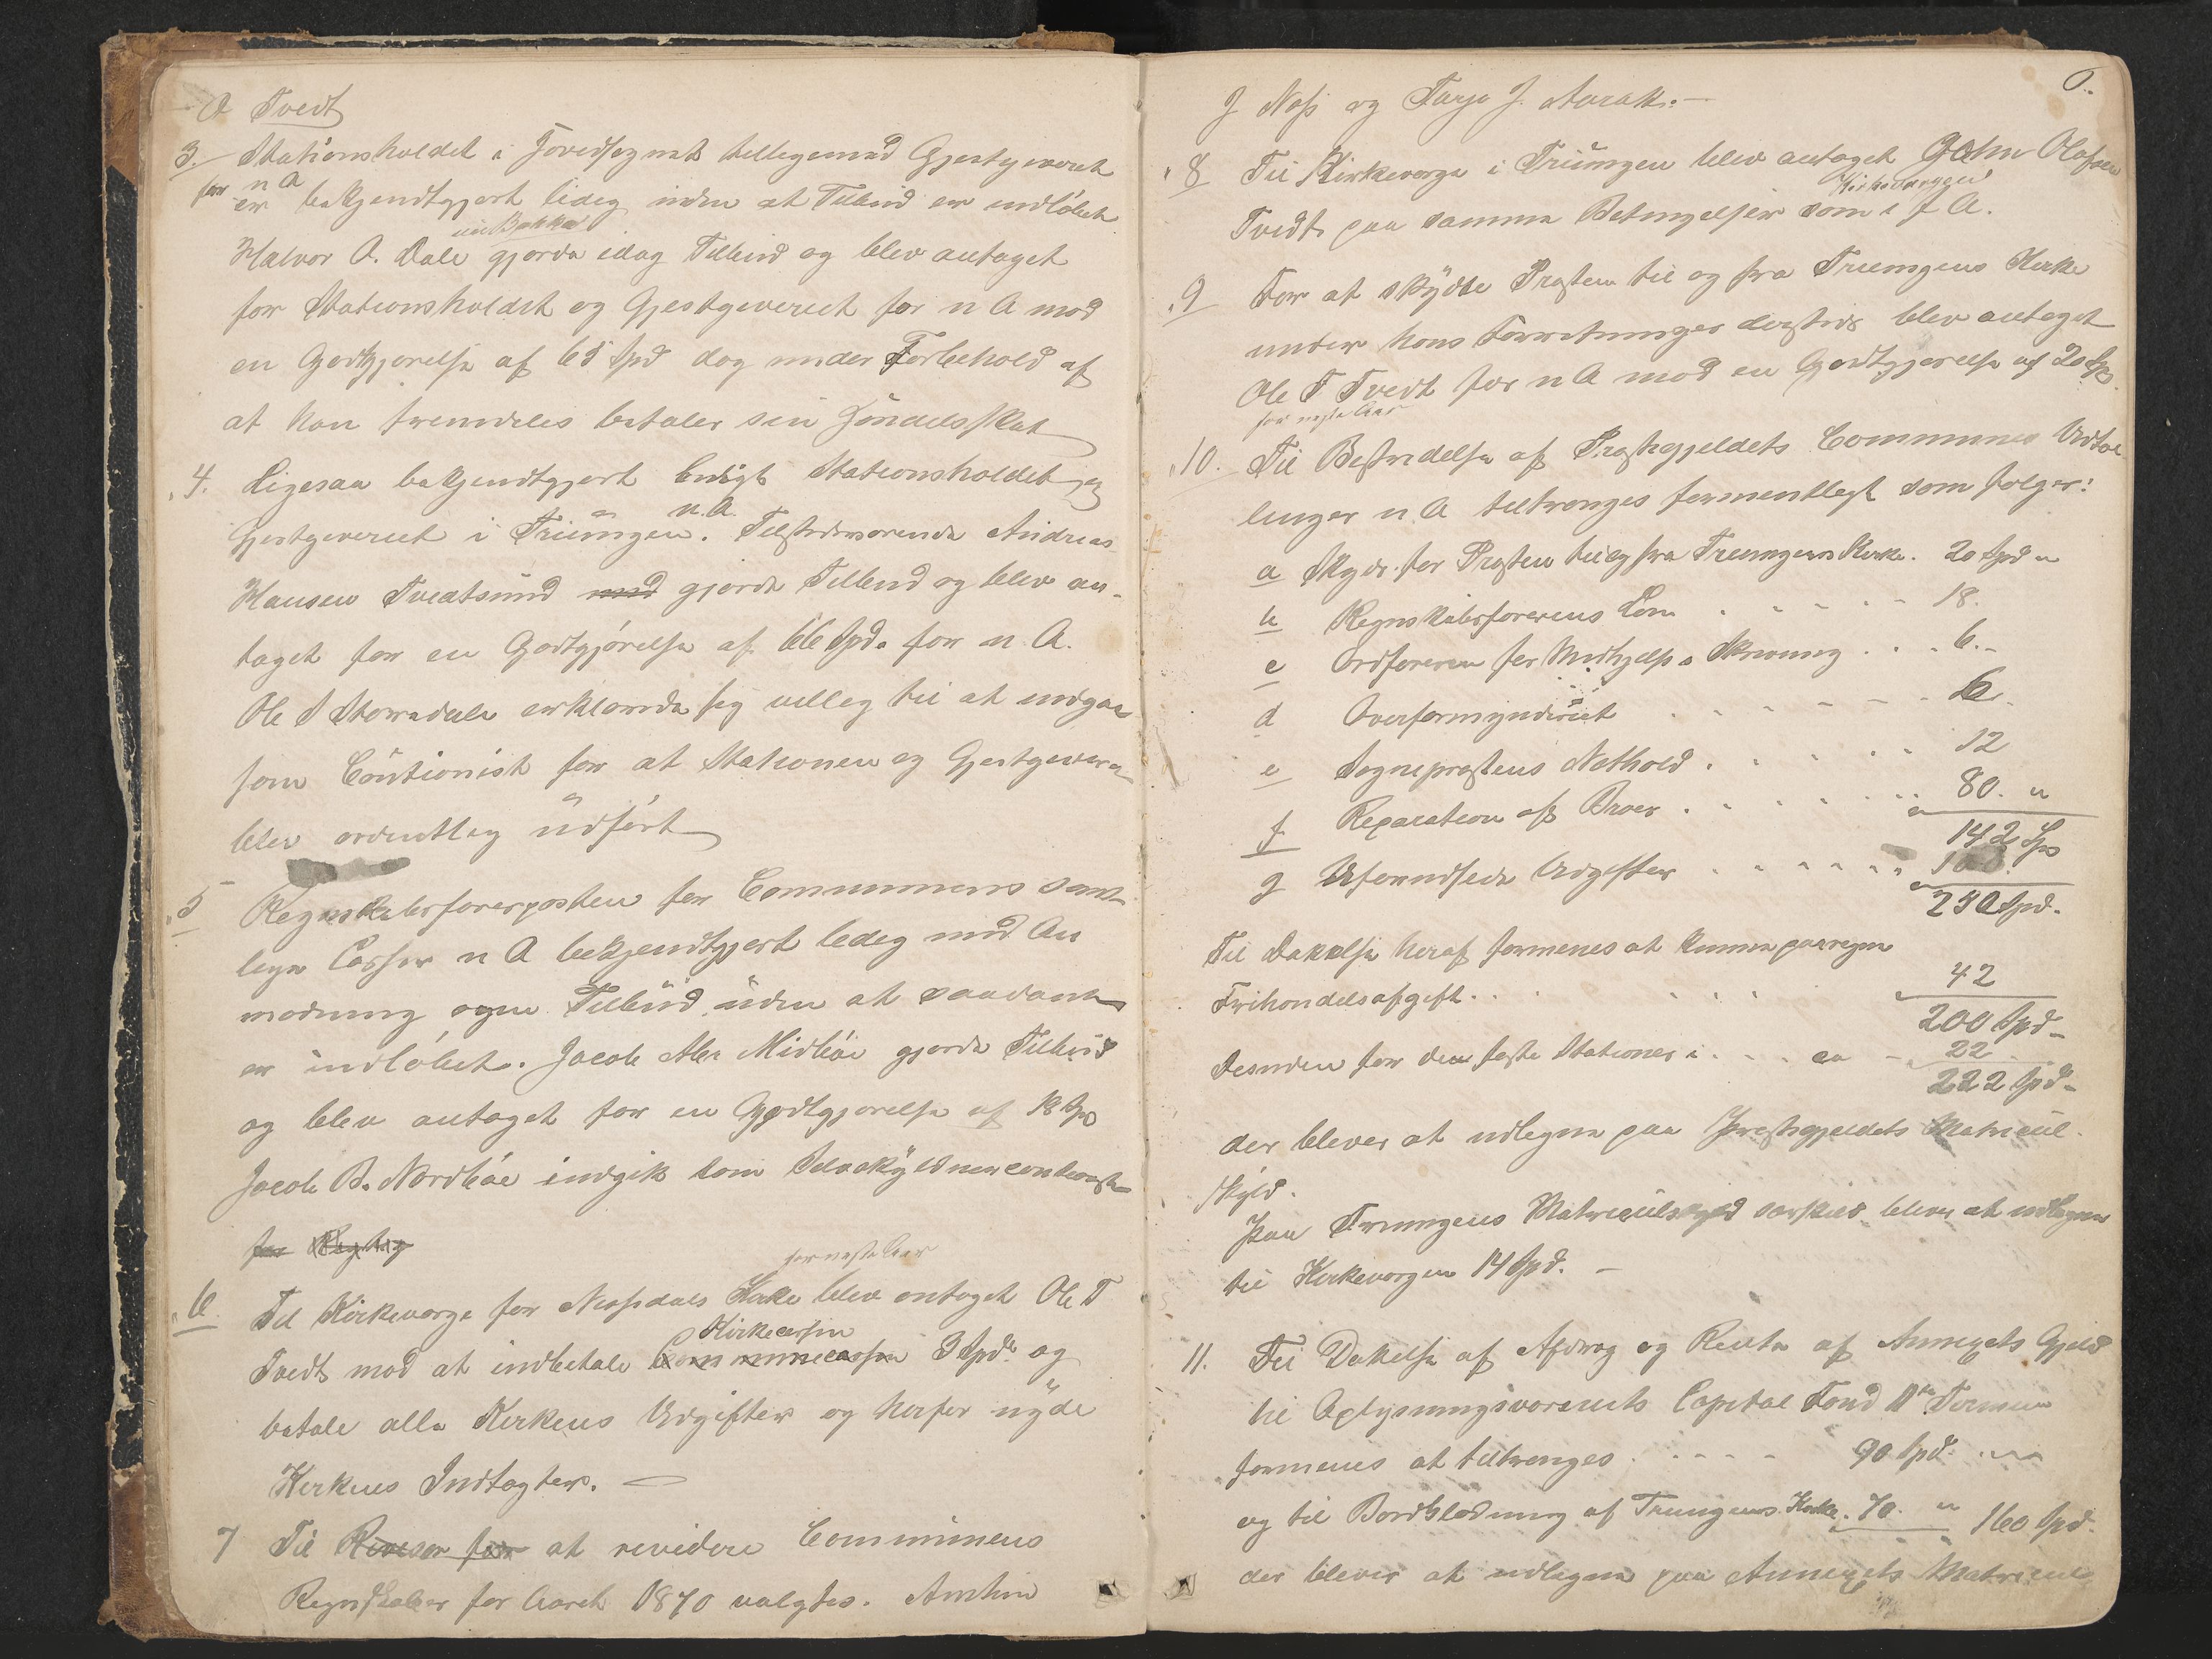 O Tvedt
3. Stationsholdet i Hovedsognet tilligemed Gjestgiveriet
for n A
er bekjendtgjort ledig uden at Tilbud er indløbet
ui Bakka
Halvor O. Dale gjorde idag Tilbud og blev antaget
for Stationsholdet og Gjestgiveriet for n A mod
en Godtgjørelse af 65 Spd dog under Forbehold af
at han fremdeles betaler sin Handelsskat
4. Ligesaa bekjendtgjort ledigt Stationsholdet og
n. A.
Gjestgiveriet i Treungen. Tilstedeværende Andreas
Hansen Tveatsund med gjorde Tilbud og blev an-
taget for en Godtgjørelse af 66 Spd. for n. A.
Ole S Storedale erklærede sig villig til at indgaa
som Cautionist for at Stationen og Gjestgiveri
blev ordentlig udført
5 Regnskabsførerposten for Communens sam-
lige Casser n A bekjendtgjort ledig med An
modning ogm Tilbud uden at saadant
er indløbet. Jacob Abr Midbøe gjorde Tilbud
og blev antaget for en Godtgjørelse af 18 Spd
Jacob B. Nordbøe indgik som Selvskyldnercautionist
for
for næste Aar
6. Til Kirkeværge for Nissedals Kirke blev antaget Ole T
Kirkecassen
Tvedt mod at indbetale Communecassen 3 Spd. og
betale alle Kirkens Udgifter og herfor nyde
Kirkens Indtægter.
7 Til Revisor for at revidere Communens
Regnskaber for Aaret 1870 valgtes. Anthin
6.
J Næss og Tarje J. Aarak.
8 Til Kirkeværge i Treungen blev antaget John Olafsen
Kirkeværgen
Tvedt paa samme Betingelser som i f A.
9 For at skydse Præsten til og fra Treungens Kirke
under hans Forretninger dersteds blev antaget
Ole T Tvedt for n A mod en Godtgjørelse af 20 Spd.
for næste Aar
10. Til Bestridelse af Præstegjeldets Communes Udtæl
linger n A tiltrænges formentligt som følger:
a Skyds for Præsten til og fra Treungens Kirke. 20 Spd "
b Regnskabsførerens Løn 18.
c Ordføreren for Medhjelp a Skrivning 6.
d Overformynderiet 6.
e Sognepræstens Nothold 12
f. Reparation af Broer 80. "
142 Spd
g Uforudsede Udgifter
250 Spd.
Til Dækkelse heraf formenes at kunne paaregne
Frihandelsafgift 42
200 Spd
Desuden for den faste Stationer i ca 22
222 Spd
der bliver at udlegne paa Præstegjeldets Matricul-
skyld.
Paa Treungens Matriculskyld særskild bliver at udlegne
til Kirkeværgen 14 Spd.
11. Til Dækelse af Afdrag og Rente af Annexets Gjeld
til Oplysningsvæsenets Capital Fond 11te Termin
formenes at tiltrænges 90 Spd.
og til Bordklædning af Treungens Kirke. 70. " 160 Spd.
der bliver at udlegne paa Annexets Matricul